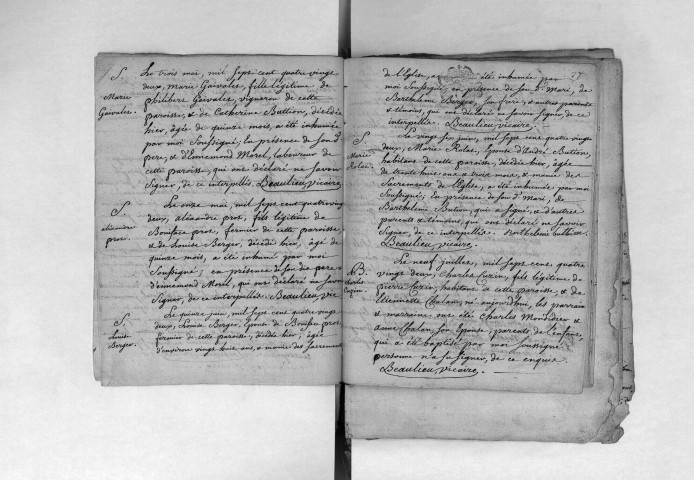 S.
Marie
Gaivalet.
Le trois mai, mil sept cent quatre vingt
deux, Marie Gaivalet, fille légitime de
philibert Gaivalet, vigneron de cette
paroisse, & de Catherine Buttion, décédée
hier, âgée de quinze mois, a été inhumée
par moi soussigné, en présence de son d.
pere, & d'Ennemond Morel, laboureur de
cette paroisse, qui ont déclaré ne savoir
signer, de ce interpellés. Beaulieu, vicaire.
S.
alixandre
prost.
Le onze mai, mil sept cent quatre vingt
deux, alixandre prost, fils légitime de
Boniface prost, fermier de cette paroisse,
& de Louise Berger, décédé hier, âgé de
quinze mois, a été inhumé par moi
soussigné, en présence de son dit pere
d'ennemond Morel, qui ont déclaré ne savoir
signer, de ce interpellés. Beaulieu, vic.
S.
Louise
Berger.
Le quinze juin, mil sept cent quatre vingt
deux, Louise Berger, épouse de Boniface prost,
fermier de cette paroisse, décédée hier, âgée
d'environ vingt huit ans, & munie des sacrements
27
de l'Eglise, a été inhumée par
moi soussigné, en présence de son d. Mari, de
Barthelemi Berger, son frere, & autres parents
& témoins, qui ont déclaré ne savoir signer, de ce
interpellés. Beaulieu, vicaire.
S.
Marie
Rolet.
Le vingt six juin, mil sept cent quatre vingt
deux, Marie Rolet, épouse d'André Bution,
habitant de cette paroisse, décédée hier, âgée
de trente huit ans & trois mois, & munie des
Sacrements de l'Eglise, a été inhumée par moi
soussigné, en présence de son d. Mari, de
Barthelemi Bution, qui a signé, & d'autres
parents & témoins, qui ont déclaré ne savoir
signer, de ce interpellés.
Beaulieu, vicaire.
B.
Charles
Le neuf juillet, mil sept cent quatre
vingt deux, Charles, fils légitime de
pierre, habitant de cette paroisse, & de
Etiennette Chalan, né aujourd'hui, les parrain
& marraine ont été Charles &
anne Chalan, son épouse, parents de l'enfant,
qui a été baptisé par moi soussigné
personne n'a su signer, de ce enquis.
Beaulieu, vicaire.